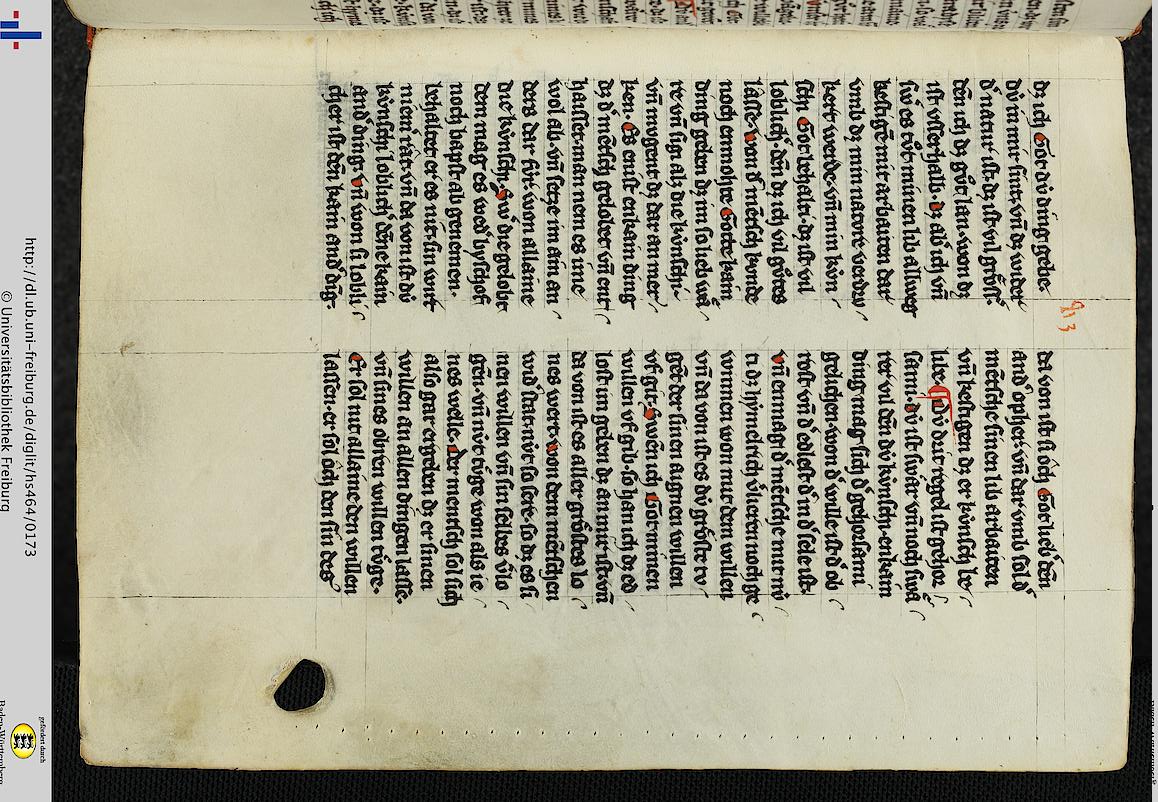 dz ich Got dú ding gebe.
dú in mir sint. vn̄ dz wider
d' natur ist. dz ist vil grôsser
den̄ ich dz gůt lan. won dz
ist vsserhalb. dz aber ich vn̄
swes tůt minen lib allweg
kestige mit arbaiten dar
vmb dz min natur verdew
kert werde. vn̄ min kún
schi Got behalti. dz ist vil
loblicher. den̄ dz ich vil gůtes
lasse. Won d' mēsch kunde
noch enmohte Gotte kain
ding geben dz im so lieb wā
re vn̄ sig alz die kúnschi.
vn̄ mugent dz dar an mer
ken. Es enist enkain ding
dz d' mēsch gelobet vn̄ ent
haisset. man nem es inne
wol ab. vn̄ setze im ain an
ders dar fúr. won allaine
die kúnschi. Swer die gelobt
dem mag es wed' byschof
noch bapst ab genemen.
behaltet er es nit. sin wirt
niem' rât. vn̄ da von ist dú
kúnschi loblicher den̄e kain
and' ding. vn̄ won si lobli
cher ist den̄ kain and' ding.
913
da von ist si ôch Got lieb' den̄
and' opher. vn̄ dar vmb sol d'
mētsche sinen lib arbaiten
vn̄ kestgen dz er kúnsch be
libe. Dú drit regel ist gehor
sami. dú ist swār vn̄ noch swā
rer vil den̄ dú kúnschi. enkain
ding mag sich d' gehorsami
gelichen. won d' wille ist d' ob
rost vn̄ d' edlest d' in d' sele ist.
vn̄ enmag d' mētsche mit nú
t dz hymelrich v'lieren noch ge
winnen won mit dem willen
vn̄ da von ist es dú grôste tv
get der sinen aignen willen
vf git. Swen̄ ich Got minen
willen vf gib. so han ich dz ed
lost im geben dz an mir ist. vn̄
da von ist es aller grôstes lo
nes wert. won dem mētschen
wid'stat nit so sere. so dz es si
nen willen vn̄ sin selbes v'lö
gen. vn̄ nit tůge won als ie
nes welle. Der mentsch sol sich
also gar ergeben dz er sinen
willen an allen dingen lasse.
vn̄ sines obren willen tůge.
Er sol nit allaine den willen
lassen. er sol ôch den sin des
http://dl.ub.uni-freiburg.de/diglit/hs464/0173
© Universitätsbibliothek Freiburg
gefördert durch
Baden-Württemberg